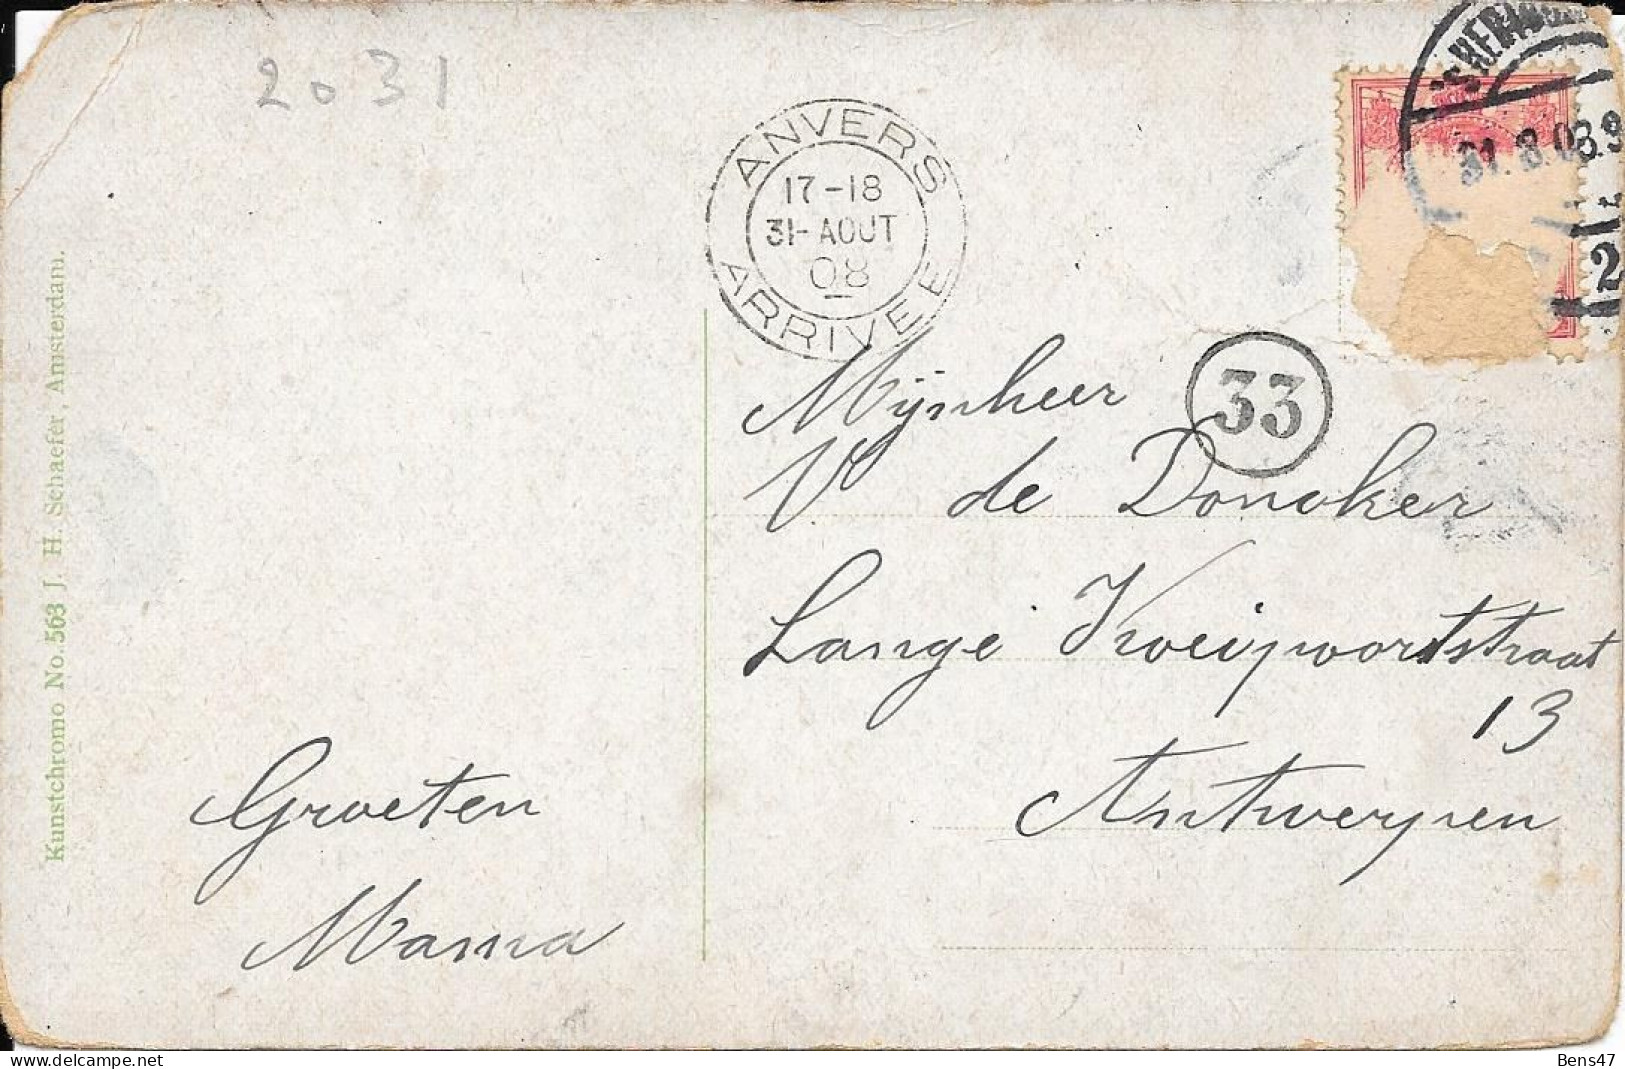 2031
ANVERS
17-18
31-AOUT
08
ARRIVEE
31.8.08.9
2
33
Mijnheer
V de Doncker
Lange Kveijpoortstraat
13
Antwerpen
Groeten
Mama
Kunstchromo No. 563 J. H. Schaefer, Amsterdam.
Bens47